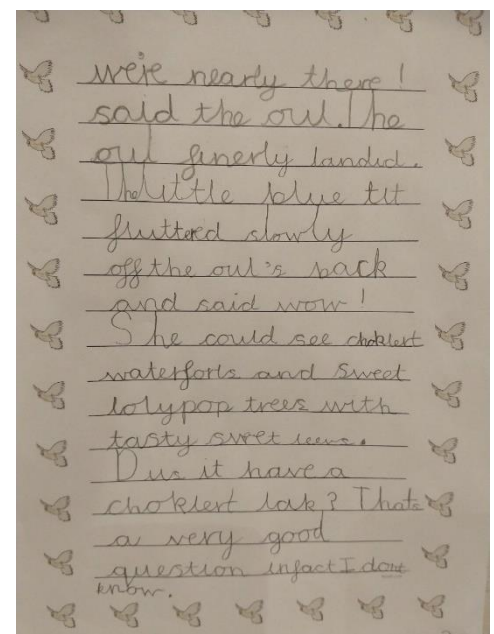 we're nearly there!
said the oul. The
oul finerly landid.
The little blue tit
fluttered slowly
off the oul's back
and said wow!
She could see choklert
waterforls and sweet
lolypop trees with
tasty sweet leevs.
Dus it have a
choklert lak? Thats
a very good
question infact I dont
know.